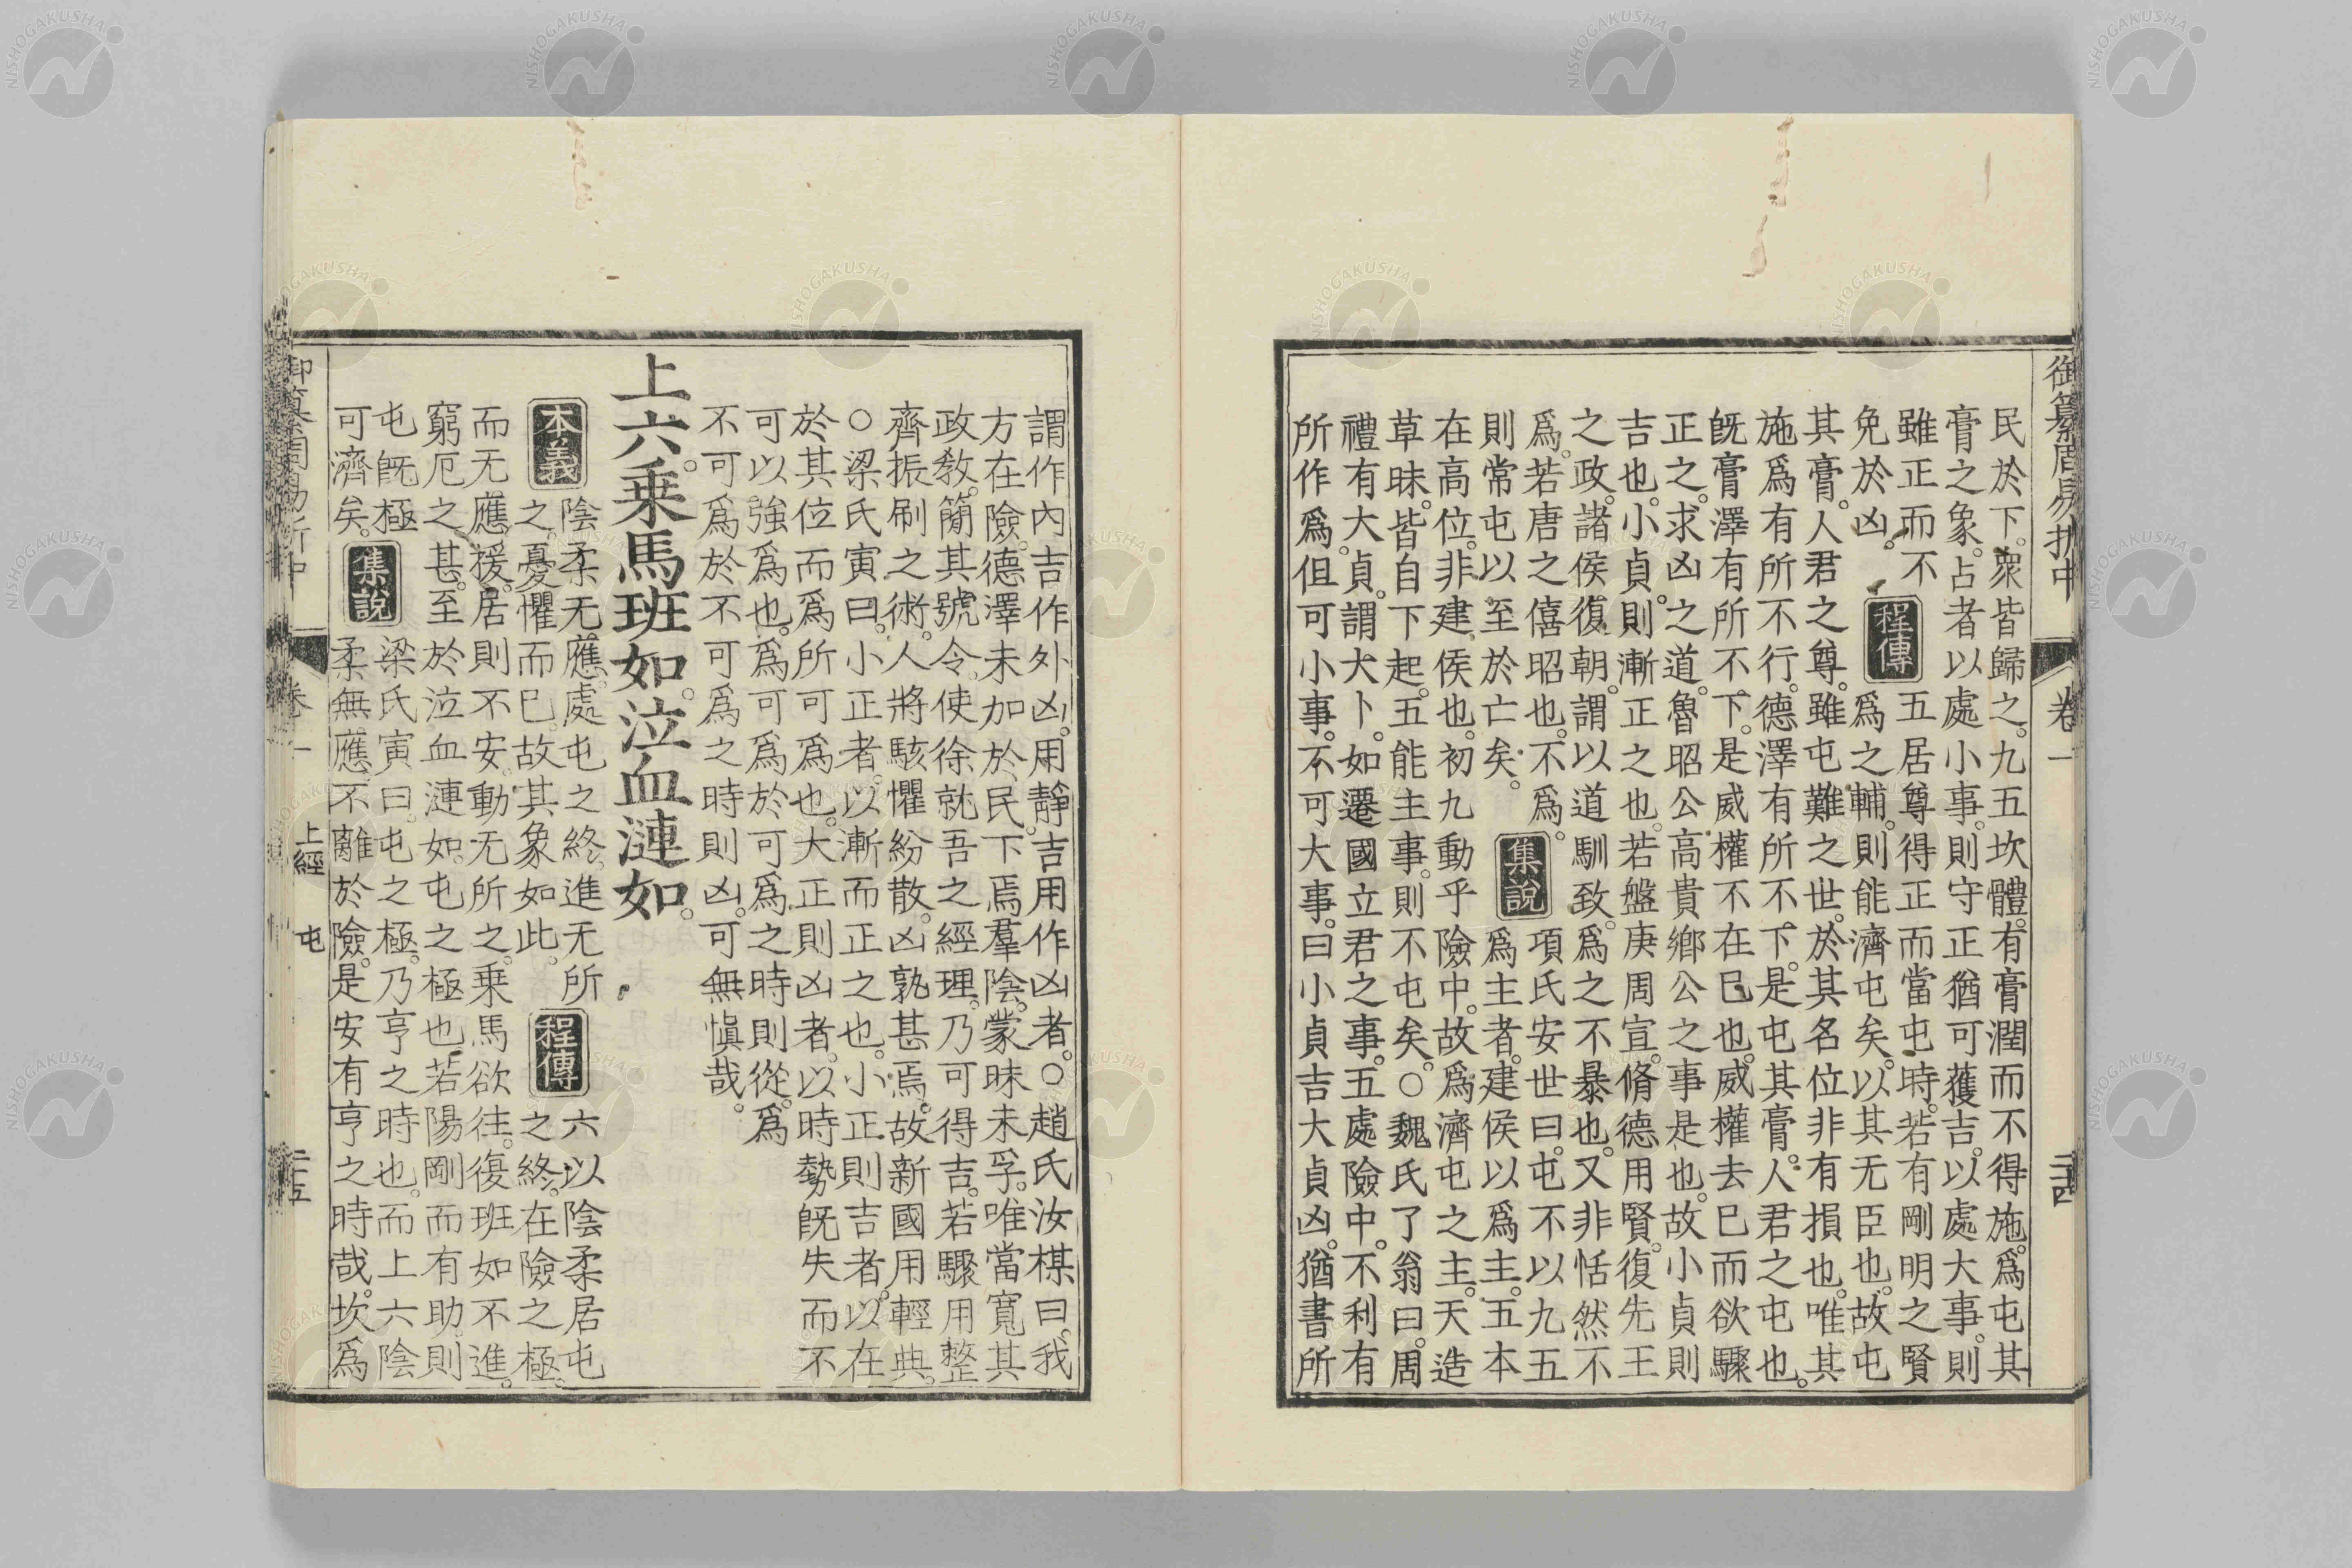 御纂周易折中 卷一 二十四
民於下。衆皆歸之。九五坎體。有膏潤而不得施。爲屯其
膏之象。占者以處小事。則守正猶可獲吉。以處大事。則
雖正而不
免於凶。
程傳
五居尊得正而當屯時。若有剛明之賢
爲之輔。則能濟屯矣。以其无臣也。故屯
其膏。人君之尊。雖屯難之世。於其名位非有損也。唯其
施爲有所不行。德澤有所不下。是屯其膏。人君之屯也。
旣膏澤有所不下。是威權不在已也。威權去已而欲驟
正之。求凶之道。魯昭公高貴鄉公之事是也。故小貞則
吉也。小貞。則漸正之也。若盤庚周宣。脩德用賢。復先王
之政。諸侯復朝。謂以道馴致。爲之不暴也。又非恬然不
爲。若唐之僖昭也。不爲。
則常屯以至於亡矣。
集說
項氏安世曰。屯不以九五
爲主者。建侯以爲主。五本
在高位。非建侯也。初九動乎險中。故爲濟屯之主。天造
草昧。皆自下起。五能主事。則不屯矣。○魏氏了翁曰。周
禮有大貞。謂大卜。如遷國立君之事。五處險中。不利有
所作爲。但可小事。不可大事。曰小貞吉大貞凶。猶書所
謂作內吉作外凶。用靜吉用作凶者。○趙氏汝楳曰。我
方在險。德澤未加於民。下焉羣陰。蒙昧未孚。唯當寬其
政敎。簡其號令。使徐就吾之經理。乃可得吉。若驟用整
齊振刷之術。人將駭懼紛散。凶孰甚焉。故新國用輕典。
○梁氏寅曰。小正者。以漸而正之也。小正則吉者。以在
於其位而爲所可爲也。大正則凶者。以時勢旣失而不
可以強爲也。爲可爲於可爲之時則從。爲
不可爲於不可爲之時則凶。可無愼哉。
上六。乘馬班如。泣血漣如。
本義
陰柔无應。處屯之終。進无所
之。憂懼而已。故其象如此。
程傳
六以陰柔居屯
之終。在險之極。
而无應援。居則不安。動无所之。乘馬欲往。復班如不進。
窮厄之甚。至於泣血漣如。屯之極也。若陽剛而有助。則
屯旣極
可濟矣。
集說
梁氏寅曰。屯之極。乃亨之時也。而上六陰
柔無應。不離於險。是安有亨之時哉。坎爲
御纂周易折中 卷一 上經 屯 二十五